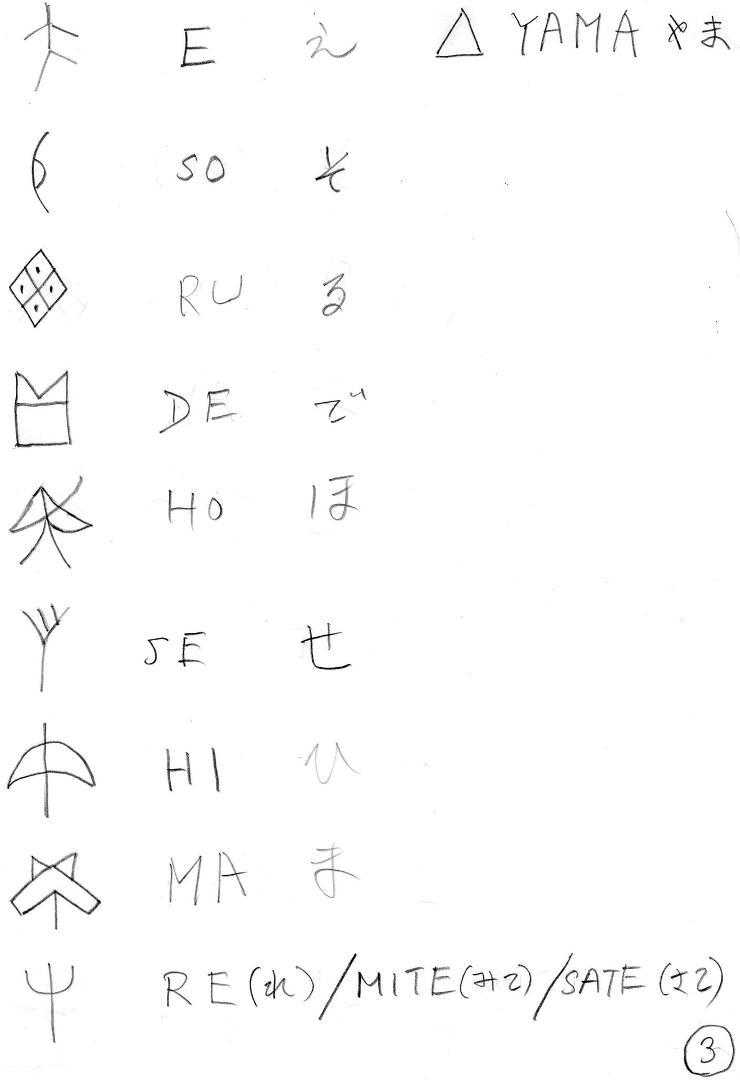 E え △ YAMA やま
SO そ
RU る
DE で
HO ほ
SE せ
HI ひ
MA ま
RE(れ)/MITE(みて)/SATE(さて)
3